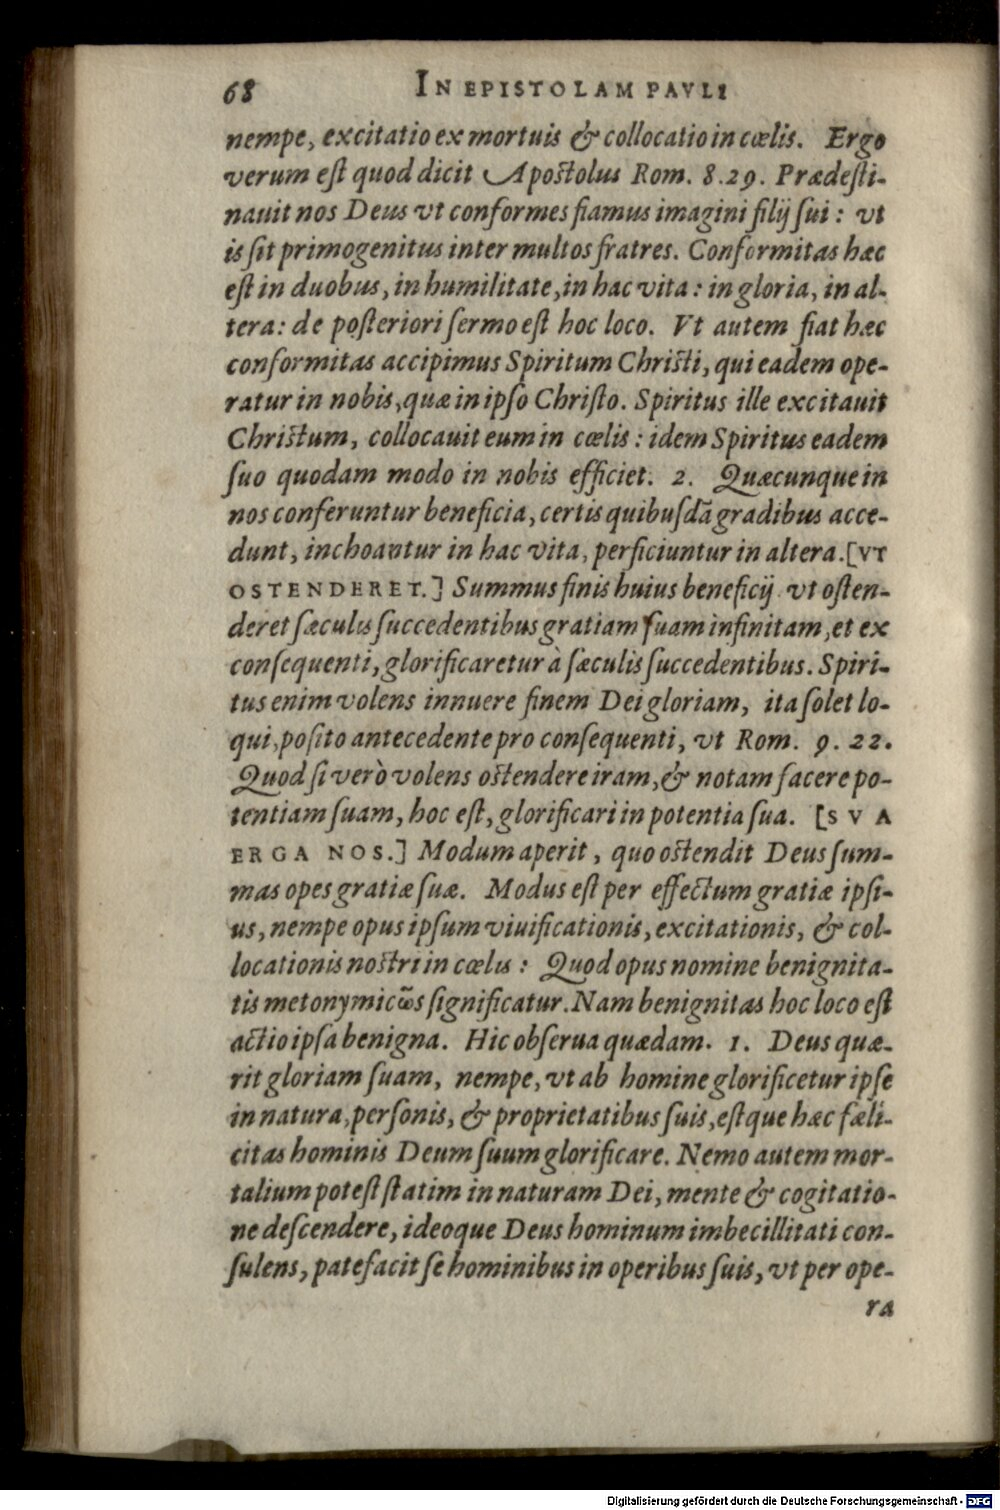 68 IN EPISTOLAM PAVLI
nempe, excitatio ex mortuis & collocatio in cœlis. Ergo
verum eſt quod dicit Apoſtolus Rom. 8.29. Prædeſti-
nauit nos Deus vt conformes fiamus imagini filij ſui: vt
is ſit primogenitus inter multos fratres. Conformitas hæc
eſt in duobus, in humilitate, in hac vita: in gloria, in al-
tera: de poſteriori ſermo eſt hoc loco. Vt autem fiat hæc
conformitas accipimus Spiritum Chriſti, qui eadem ope-
ratur in nobis, quæ in ipſo Chriſto. Spiritus ille excitauit
Chriſtum, collocauit eum in cœlis: idem Spiritus eadem
ſuo quodam modo in nobis efficiet. 2. Quæcunque in
nos conferuntur beneficia, certis quibuſdã gradibus acce-
dunt, inchoantur in hac vita, perficiuntur in altera. [VT
OSTENDERET.] Summus finis huius beneficij vt oſten-
deret ſæculis ſuccedentibus gratiam ſuam infinitam, et ex
conſequenti, glorificaretur à ſæculis ſuccedentibus. Spiri-
tus enim volens innuere finem Dei gloriam, ita ſolet lo-
qui, poſito antecedente pro conſequenti, vt Rom. 9. 22.
Quod ſi verò volens oſtendere iram, & notam facere po-
tentiam ſuam, hoc eſt, glorificari in potentia ſua. [SVA
ERGA NOS.] Modum aperit, quo oſtendit Deus ſum-
mas opes gratiæ ſuæ. Modus eſt per effectum gratiæ ipſi-
us, nempe opus ipſum viuificationis, excitationis, & col-
locationis noſtri in cœlis: Quod opus nomine benignita-
tis metonymicῶs ſignificatur. Nam benignitas hoc loco eſt
actio ipſa benigna. Hic obſerua quædam. 1. Deus quæ-
rit gloriam ſuam, nempe, vt ab homine glorificetur ipſe
in natura, perſonis, & proprietatibus ſuis, eſtque hæc fæli-
citas hominis Deum ſuum glorificare. Nemo autem mor-
talium poteſt ſtatim in naturam Dei, mente & cogitatio-
ne deſcendere, ideoque Deus hominum imbecillitati con-
ſulens, patefacit ſe hominibus in operibus ſuis, vt per ope-
ra
Digitalisierung gefördert durch die Deutsche Forschungsgemeinschaft - DFG